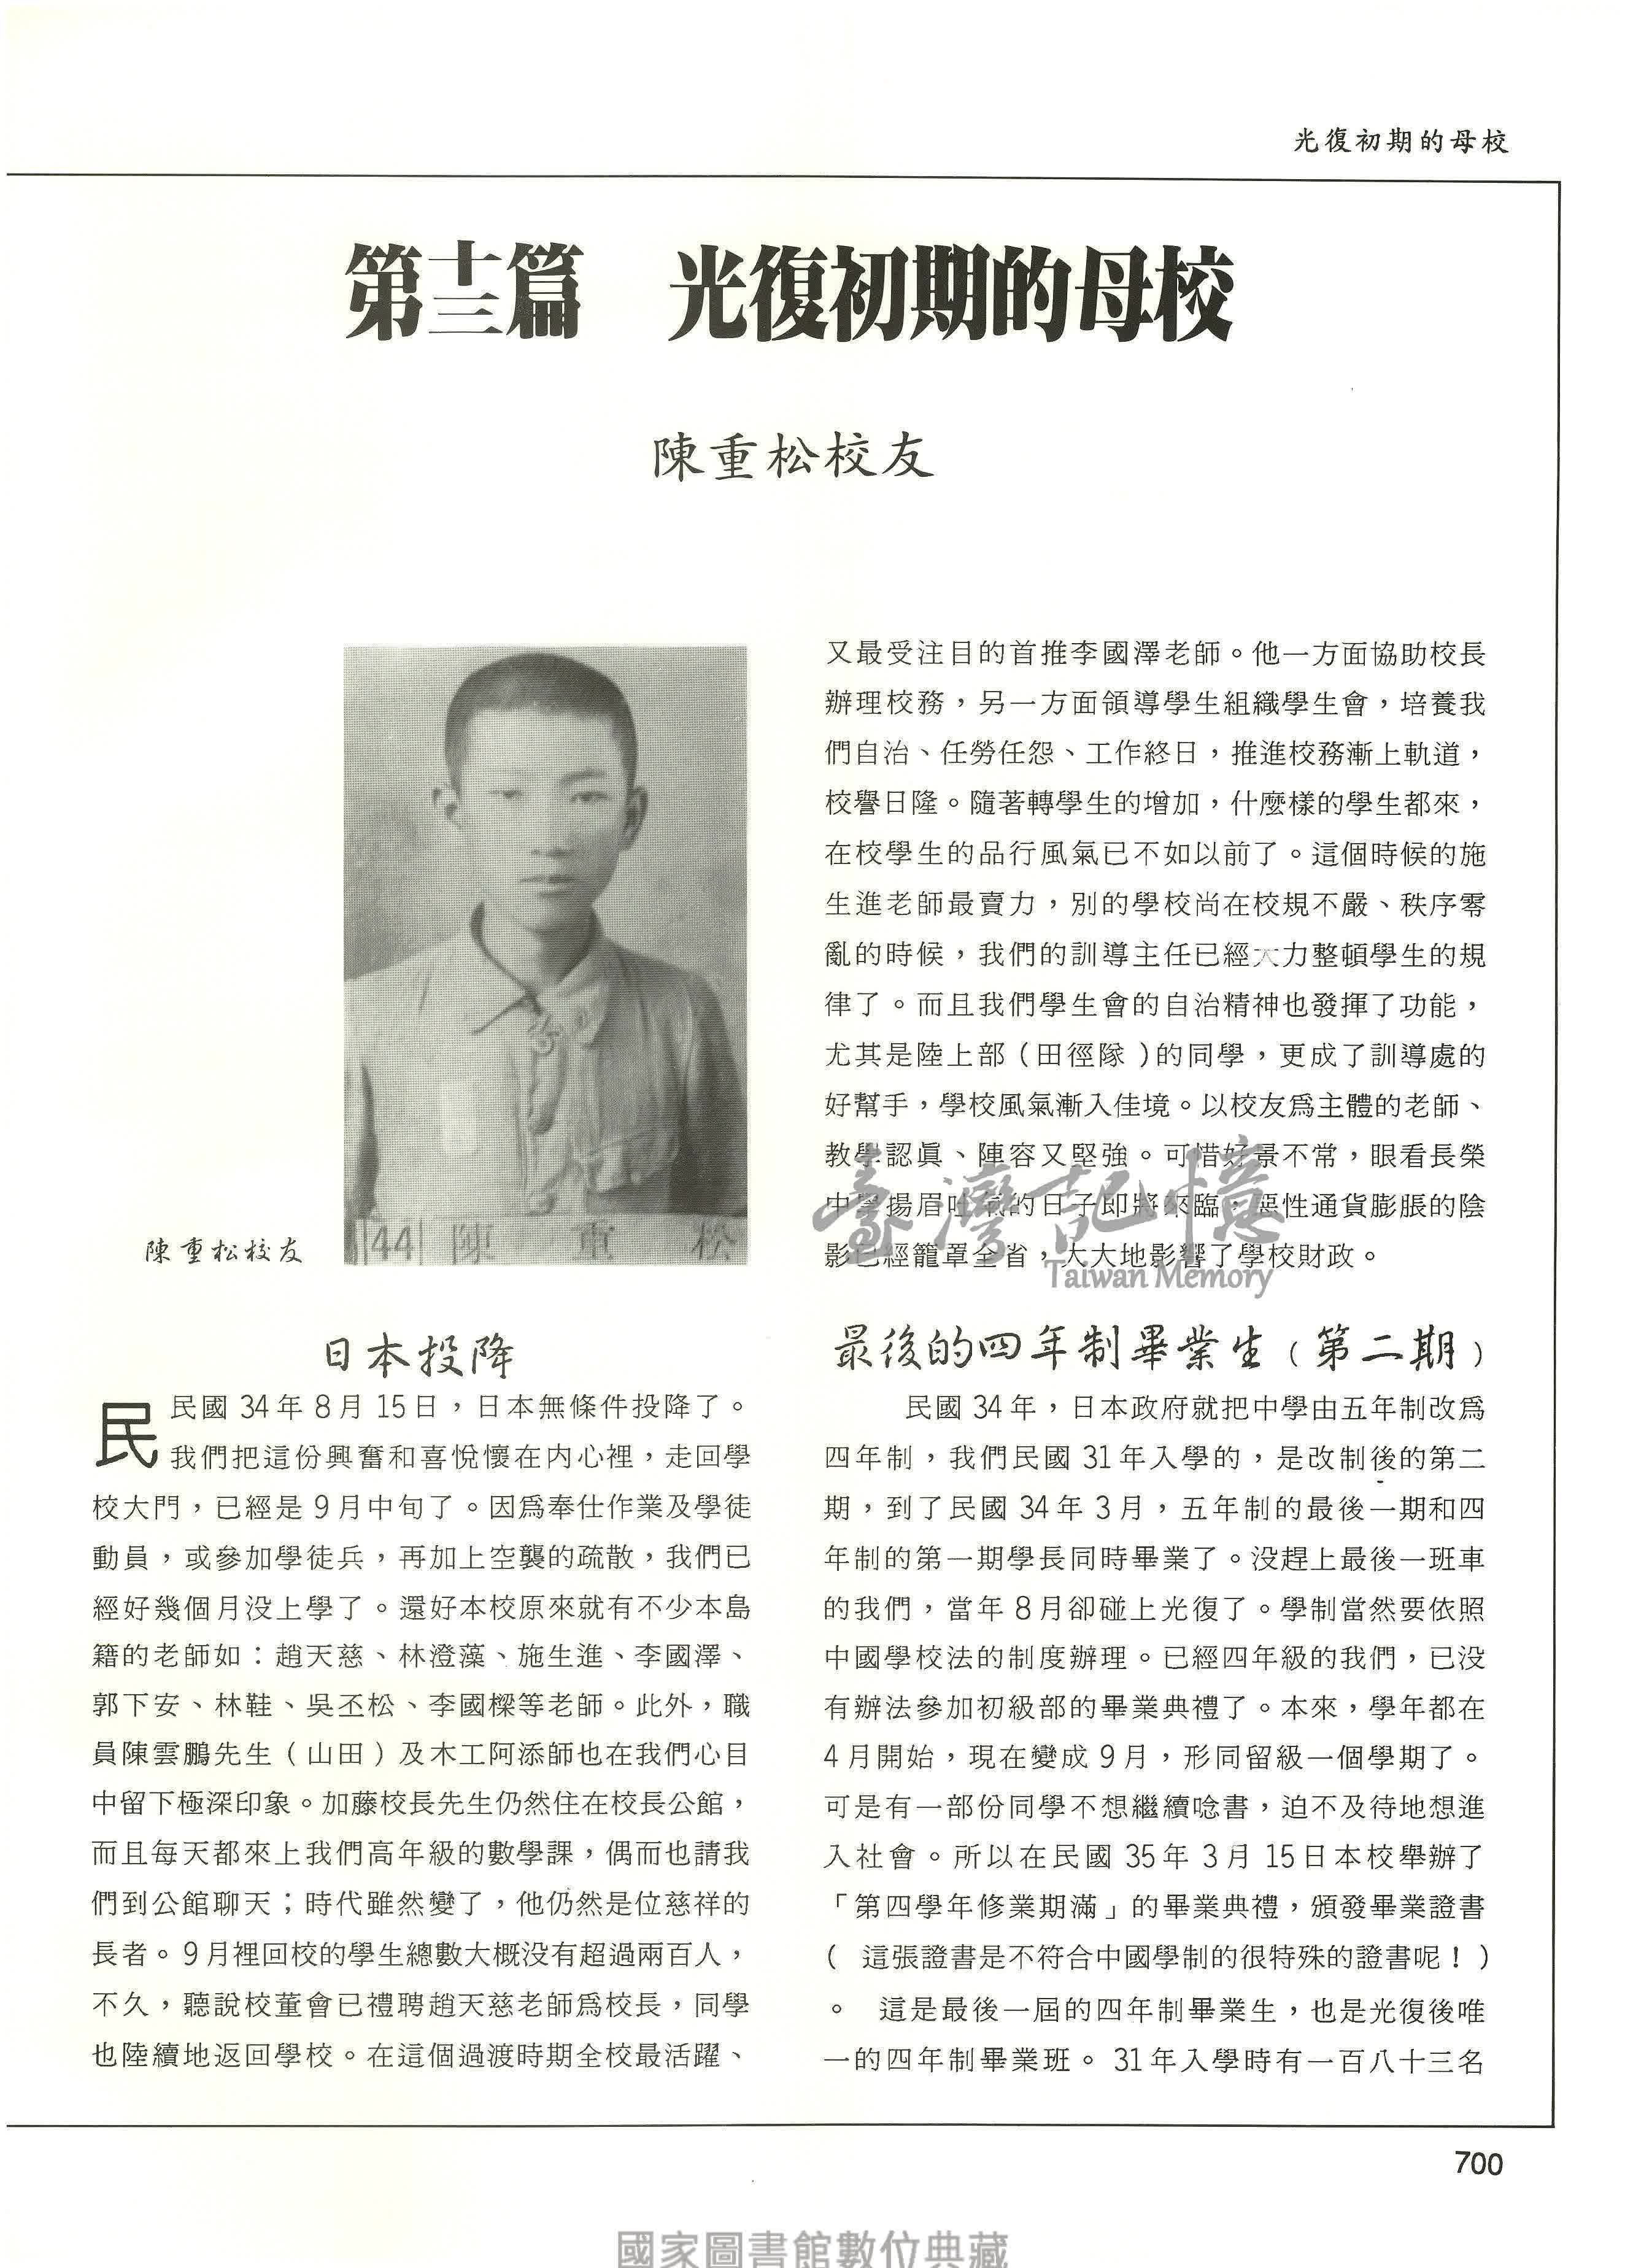 光復初期的母校
第十三篇　光復初期的母校
陳重松校友
44 陳 重 松
陳重松校友
日本投降
民民國34年8月15日，日本無條件投降了。
我們把這份興奮和喜悅懷在內心裡，走回學
校大門，已經是9月中旬了。因為奉仕作業及學徒
動員，或參加學徒兵，再加上空襲的疏散，我們已
經好幾個月沒上學了。還好本校原來就有不少本島
籍的老師如：趙天慈、林澄藻、施生進、李國澤、
郭下安、林鞋、吳丕松、李國樑等老師。此外，職
員陳雲鵬先生（山田）及木工阿添師也在我們心目
中留下極深印象。加藤校長先生仍然住在校長公館，
而且每天都來上我們高年級的數學課，偶而也請我
們到公館聊天；時代雖然變了，他仍然是位慈祥的
長者。9月裡回校的學生總數大概沒有超過兩百人，
不久，聽說校董會已禮聘趙天慈老師爲校長，同學
也陸續地返回學校。在這個過渡時期全校最活躍、
又最受注目的首推李國澤老師。他一方面協助校長
辦理校務，另一方面領導學生組織學生會，培養我
們自治、任勞任怨、工作終日，推進校務漸上軌道，
校譽日隆。隨著轉學生的增加，什麼樣的學生都來，
在校學生的品行風氣已不如以前了。這個時候的施
生進老師最賣力，別的學校尚在校規不嚴、秩序零
亂的時候，我們的訓導主任已經大力整頓學生的規
律了。而且我們學生會的自治精神也發揮了功能，
尤其是陸上部（田徑隊）的同學，更成了訓導處的
好幫手，學校風氣漸入佳境。以校友爲主體的老師、
教學認眞、陣容又堅強。可惜好景不常，眼看長榮
中學揚眉吐氣的日子即將來臨，惡性通貨膨脹的陰
影已經籠罩全省，大大地影響了學校財政。
最後的四年制畢業生（第二期）
民國34年，日本政府就把中學由五年制改爲
四年制，我們民國31年入學的，是改制後的第二
期，到了民國34年3月，五年制的最後一期和四
年制的第一期學長同時畢業了。沒趕上最後一班車
的我們，當年8月卻碰上光復了。學制當然要依照
中國學校法的制度辦理。已經四年級的我們，已沒
有辦法參加初級部的畢業典禮了。本來，學年都在
4月開始，現在變成9月，形同留級一個學期了。
可是有一部份同學不想繼續唸書，迫不及待地想進
入社會。所以在民國35年3月15日本校舉辦了
「第四學年修業期滿」的畢業典禮，頒發畢業證書
（ 這張證書是不符合中國學制的很特殊的證書呢！）
。 這是最後一屆的四年制畢業生，也是光復後唯
一的四年制畢業班。31年入學時有一百八十三名
臺灣記憶
Taiwan Memory
700
國家圖書館數位典藏